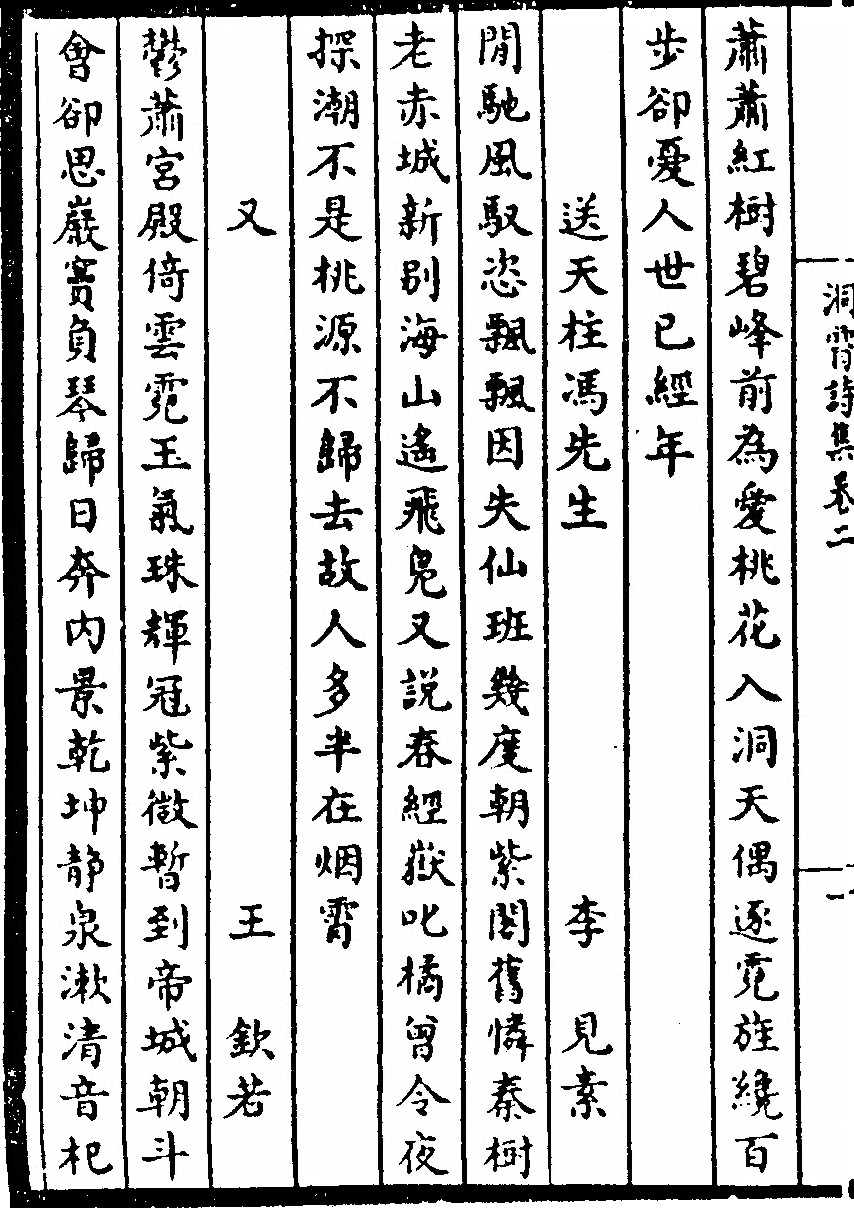 洞霄詩集卷二
一
蕭蕭紅樹碧峰前為愛桃花入洞天偶逐霓旌繞百
步卻憂人世已經年
送天柱馮先生 李見素
閒馳風馭恣飄飄因失仙班幾度朝紫閣舊憐秦樹
老赤城新別海山遙飛鳧又說春經嶽叱橘曾令夜
探潮不是桃源不歸去故人多半在烟霄
又 王欽若
鬱蕭宮殿倚雲霓玉氣珠輝冠紫微暫到帝城朝斗
會卻思巖竇負琴歸日奔內景乾坤靜泉漱清音杞